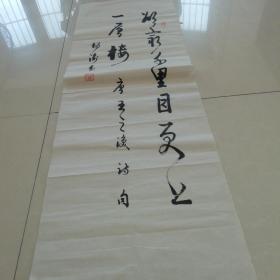 欲穷千里目更上
一层楼 唐王之涣诗句